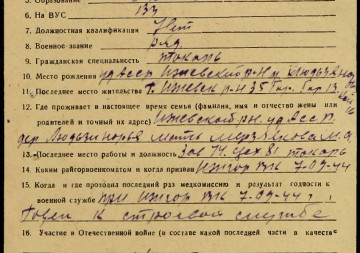 6. На ВУС 133
7. Должностная квалификация Нет
8. Военное звание ряд
9. Гражданская специальность токарь
10. Место рождения УдАССР Ижевский р-н д.
11. Последнее место жительства г. Ижевск
12. Где проживает в настоящее время семья (фамилия, имя и отчество жены или
родителей и точный их адрес) Ижевский р-н УдАССР
дер. мать
13. Последнее место работы и должность Зав 74 Цех 81 токарь
14. Каким райгорвоенкоматом и когда призван ИжГор ВК 7-03-44
15. Когда и где проходил последний раз медкомиссию и результат годности к
военной службе при ИжГор ВК 7-03-44 г.
Годен к строевой службе
16. Участие в Отечественной войне (в составе какой последней части в качеств